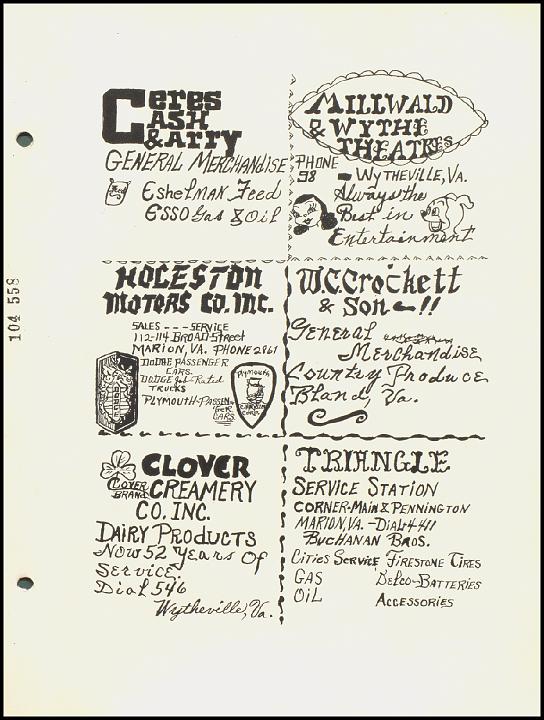 Ceres
Cash
& Carry
General Merchandise
Eshelman Feed
Esso Gas & Oil
Millwald
& Wythe
Theatres
Phone
98 - Wytheville, Va.
Always the
Best in
Entertainment
Holeston
Motors Co. Inc.
Sales --- Service
112-114 Broad Street
Marion, Va. Phone 2861
Dodge Passenger
Cars.
Dodge Job-Rated
Trucks
Plymouth-Passen-
ger
Cars.
Plymouth
W.C. Crockett
& Son !!
General
Merchandise
Country Produce
Bland, Va.
Clover
Clover
Brand
Creamery
Co. Inc.
Dairy Products
Now 52 Years Of
Service
Dial 546
Wytheville, Va.
Triangle
Service Station
Corner-Main & Pennington
Marion, Va. - Dial 4411
Buchanan Bros.
Cities Service Firestone Tires
Gas Delco-Batteries
Oil Accessories
104 558